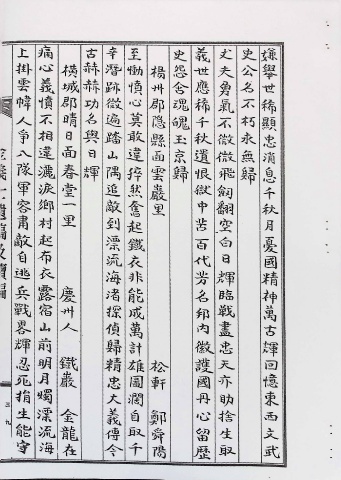 嫌擧世稀顯忠消息千秋月憂國精神萬古輝回憶東西文武
史公名不朽永無歸
丈夫勇氣不微微飛飼翻空白日輝臨戰盡忠天亦助捨生取
義世應稀千秋遺恨獄中苦百代芳名邦內徽護國丹心留歷
史怨含魂魄玉京歸
楊州郡隱縣面雲巖里 松軒 鄭舜陽
至慟憤心莫敢違猝然奮起鐵衣非能成萬計雄圖濶自取千
辛潛跡微遍踏山隅追敵到漂流海渚探偵歸精忠大義傳今
古赫赫功名與日輝
橫城郡晴日面春堂一里 慶州人 鐵巖 金龍在
痛心義憤不相違灑淚鄉村起布衣露宿山前明月燭漂流海
上掛雲幃人爭八隊軍容肅敵自逃兵戰畧輝忍死捐生能守
三九